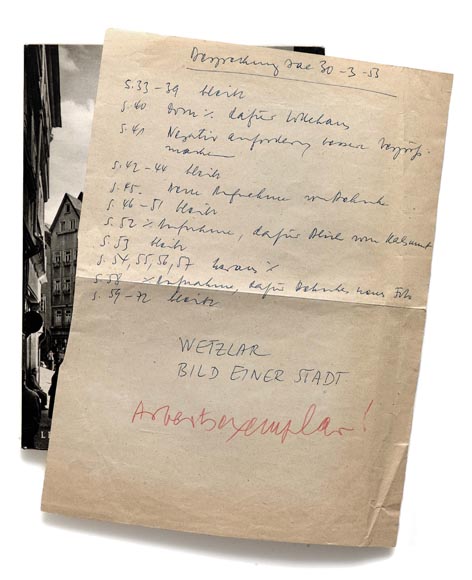 Besprechung 30-3-53
S. 33-39 bleibt
S. 40 Dom % dafür Lottehaus
S. 41 Negativ anfordern, besser Vergröss.
machen
S. 42-44 bleibt
S. 45. Neue Aufnahme
S. 46-51 bleibt
S. 52 % Aufnahme, dafür Blick vom Kalsmunt
S. 53 bleibt
S. 54, 55, 56, 57 heraus %
S. 58 % Aufnahme, dafür neues Foto
S. 59-72 bleibt
WETZLAR
BILD EINER STADT
Arbeitsexemplar!